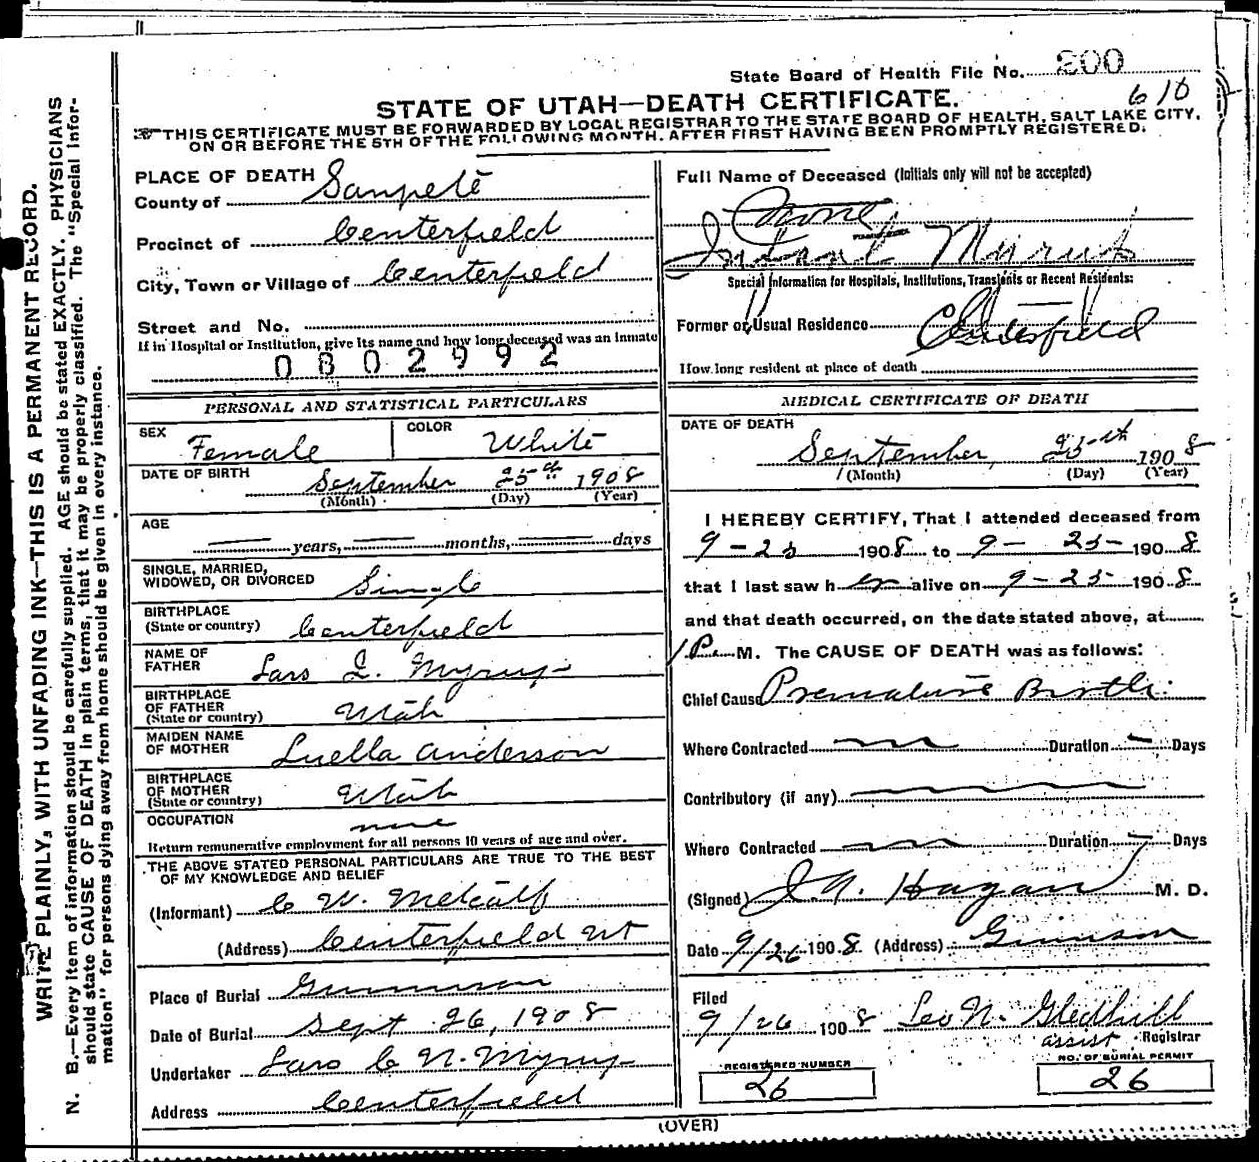 State Board of Health File No. 200
6 10
STATE OF UTAH—DEATH CERTIFICATE.
THIS CERTIFICATE MUST BE FORWARDED BY LOCAL REGISTRAR TO THE STATE BOARD OF HEALTH, SALT LAKE CITY,
ON OR BEFORE THE 5TH OF THE FOLLOWING MONTH, AFTER FIRST HAVING BEEN PROMPTLY REGISTERED.
WRITE PLAINLY, WITH UNFADING INK—THIS IS A PERMANENT RECORD.
N. B.—Every item of information should be carefully supplied. AGE should be stated EXACTLY. PHYSICIANS
should state CAUSE OF DEATH in plain terms, that it may be properly classified. The "Special Infor-
mation" for persons dying away from home should be given in every instance.
PLACE OF DEATH
County of Sanpete
Precinct of Centerfield
City, Town or Village of Centerfield
Street and No.
If in Hospital or Institution, give its name and how long deceased was an inmate
0802992
PERSONAL AND STATISTICAL PARTICULARS
SEX Female COLOR White
DATE OF BIRTH September 25th 1908
(Month) (Day) (Year)
AGE
years, months, days
SINGLE, MARRIED,
WIDOWED, OR DIVORCED Single
BIRTHPLACE
(State or country) Centerfield
NAME OF
FATHER Lars L. Myrup
BIRTHPLACE
OF FATHER
(State or country) Utah
MAIDEN NAME
OF MOTHER Luella Anderson
BIRTHPLACE
OF MOTHER
(State or country) Utah
OCCUPATION none
Return remunerative employment for all persons 10 years of age and over.
THE ABOVE STATED PERSONAL PARTICULARS ARE TRUE TO THE BEST
OF MY KNOWLEDGE AND BELIEF
(Informant) C W. Metcalf
(Address) Centerfield Ut
Place of Burial Gunnison
Date of Burial Sept 26, 1908
Undertaker Lars C N. Myrup
Address Centerfield
Full Name of Deceased (Initials only will not be accepted)
Infant Myrup
Special Information for Hospitals, Institutions, Transients or Recent Residents:
Former or Usual Residence Centerfield
How long resident at place of death
MEDICAL CERTIFICATE OF DEATH
DATE OF DEATH
September, 25th 1908
(Month) (Day) (Year)
I HEREBY CERTIFY, That I attended deceased from
9-25 1908 to 9-25-1908
that I last saw her alive on 9-25-1908
and that death occurred, on the date stated above, at
1 P. M. The CAUSE OF DEATH was as follows:
Chief Cause Premature Birth
Where Contracted Duration Days
Contributory (if any)
Where Contracted Duration Days
(Signed) J. A. Hagan M. D.
Date 9/26 1908 (Address) Gunnison
Filed
9/26 1908 Leo N. Gledhill
assist Registrar
REGISTERED NUMBER
26
NO. OF BURIAL PERMIT
26
(OVER)